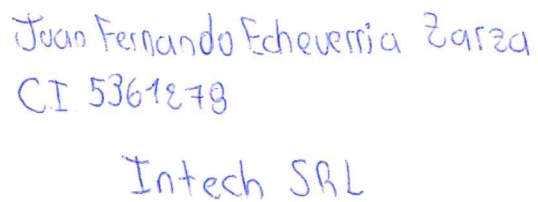 Juan Fernando Echeverria Zarza
CI 5361279
Intech SRL